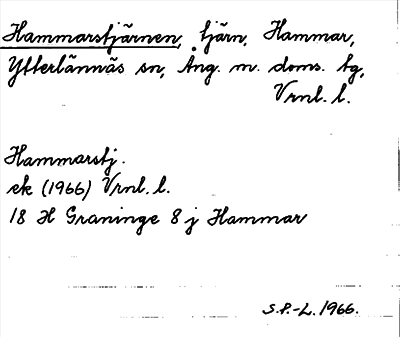 Hammarstjärnen, tjärn, Hammar,
Ytterlännäs sn, Ång. m. doms. tg,
Vrnl. l.
Hammarstj.
ek (1966) Vrnl. l.
18 H Graninge 8 j Hammar
S.P.-L. 1966.